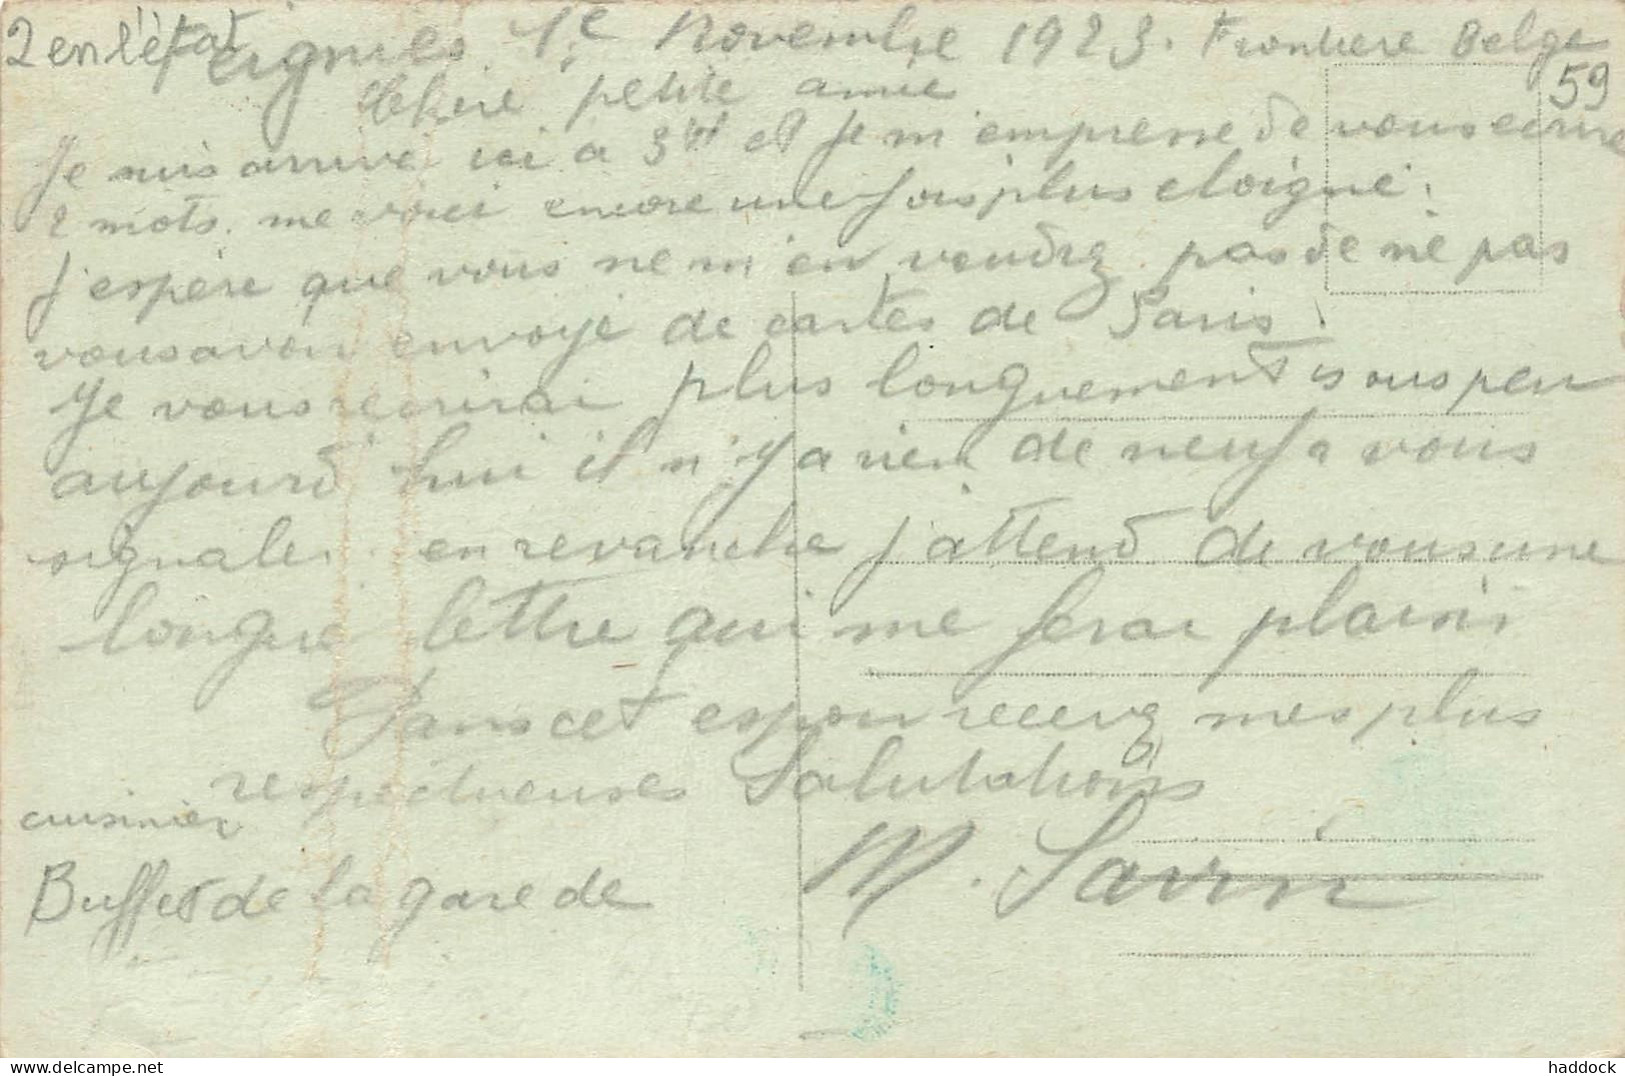 2 en l'état
eignies 1e Novembre 1923. Frontiere Belge
59
Chere petite amie
Je suis arrivé ici a 3H et Je m'empresse de vous ecrire
2 mots. me voici encore une fois plus eloigné.
J'espère que vous ne m'en voudrez pas de ne pas
vous avoir envoyé de cartes de Paris.
Je vous recrirai plus longuement sous peu
aujourd'hui il n'y a rien de neuf a vous
signaler. en revanche j'attend de vous une
longue lettre qui me ferai plaisir
Dans cet espoir recevez mes plus
respectueuses Salutations
cuisinier
Buffet de la gare de
M.
www.delcampe.net
haddock